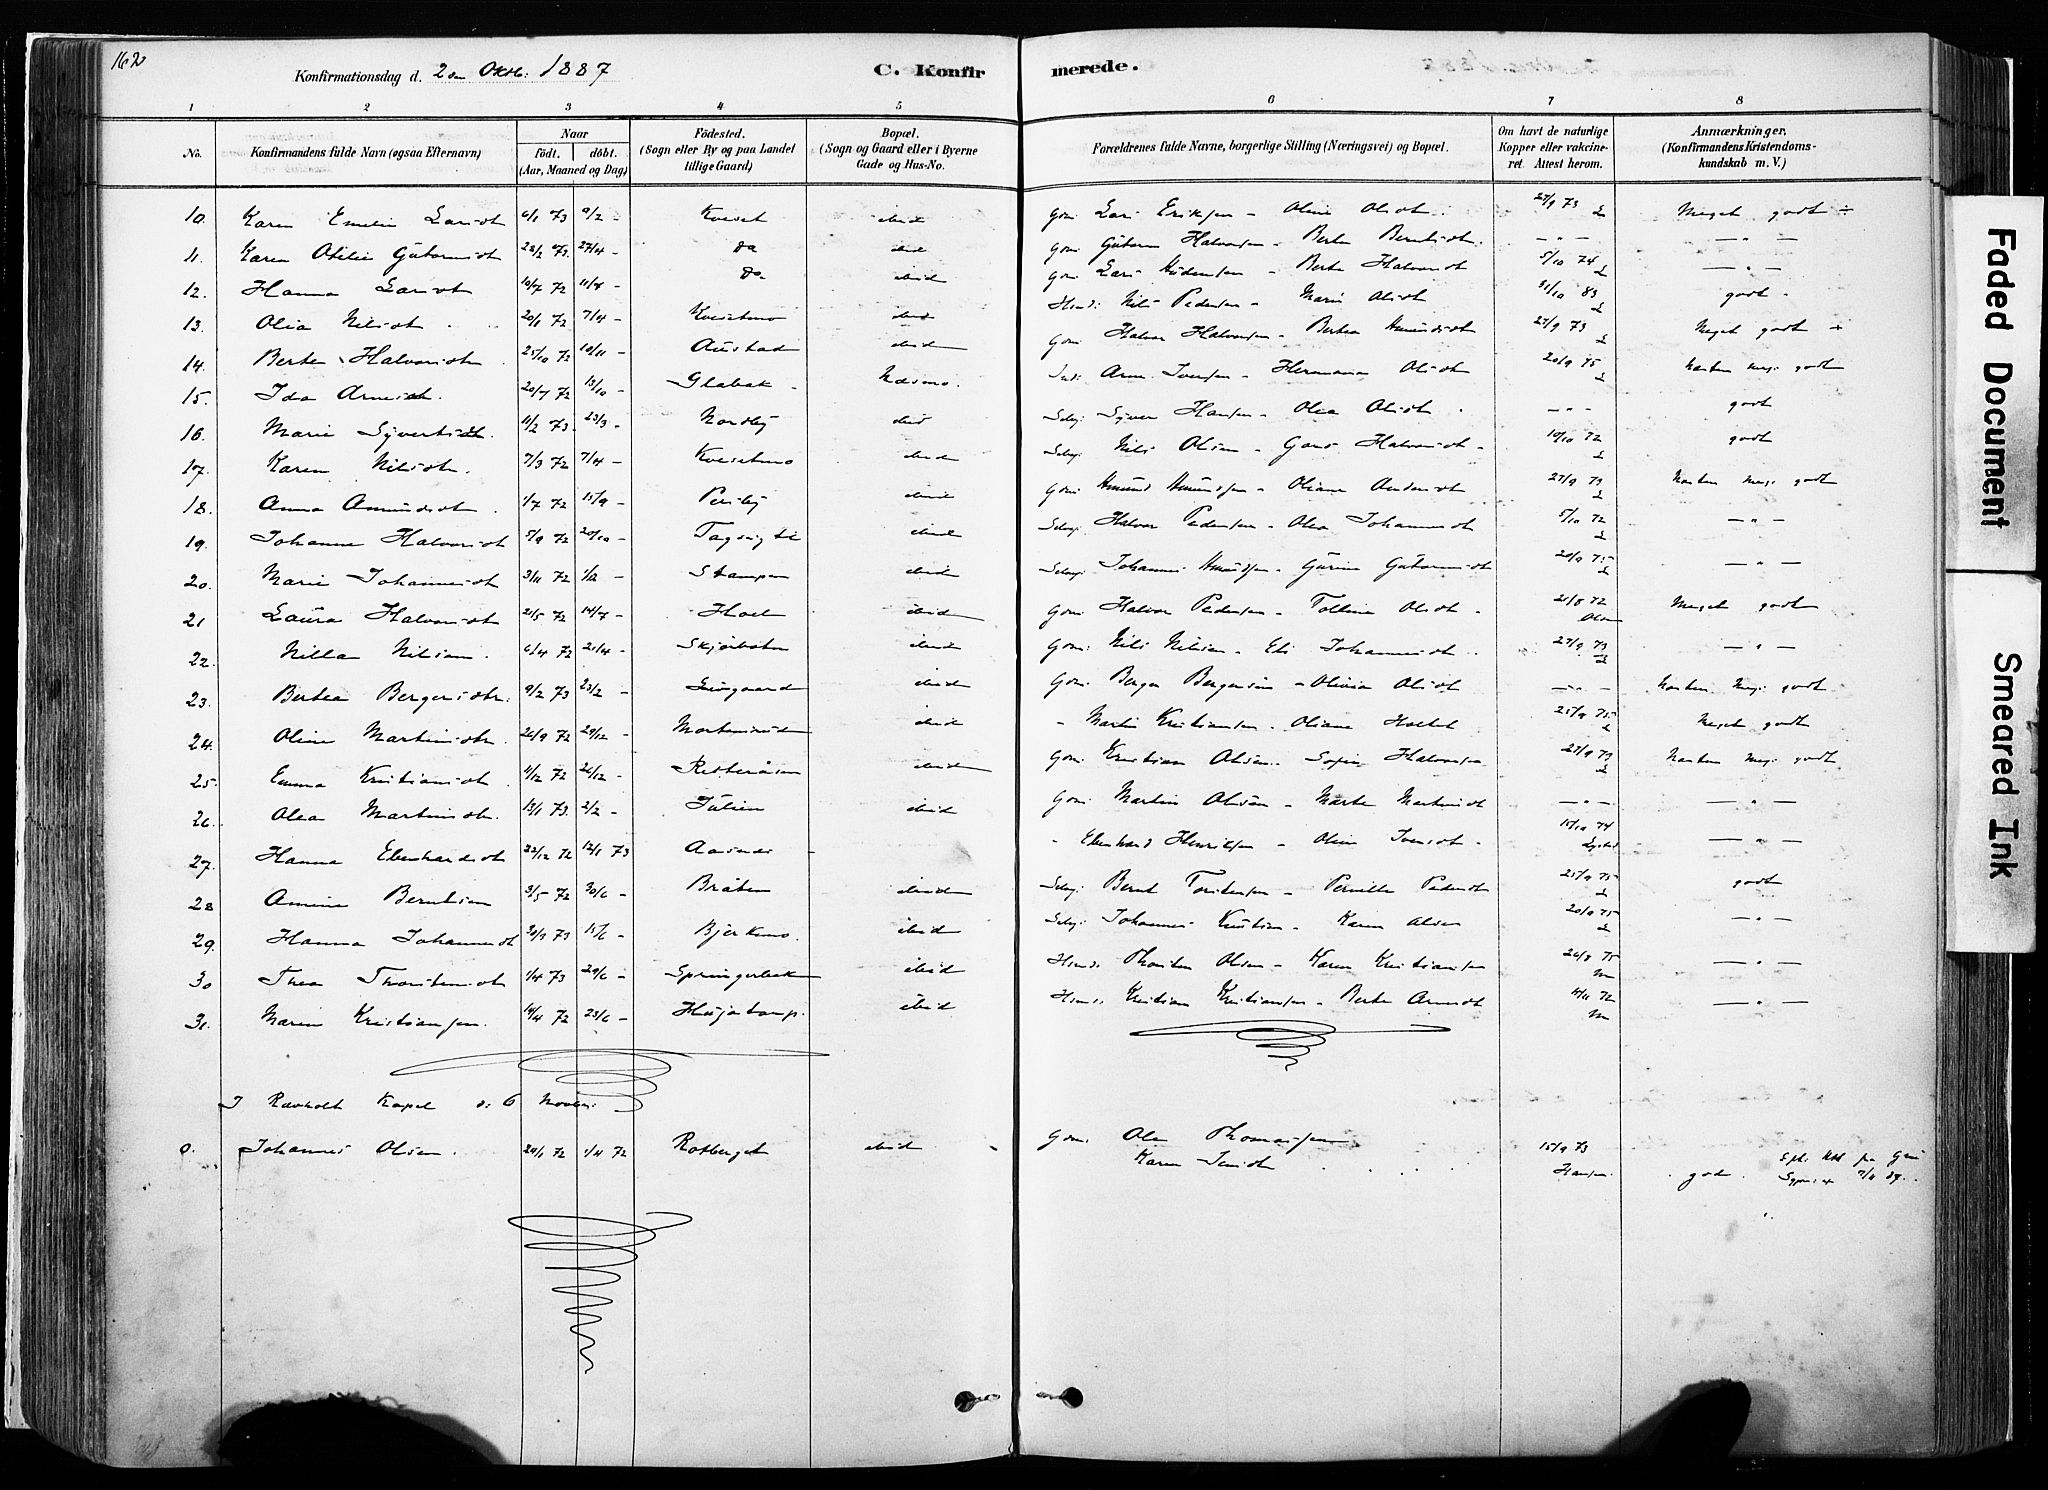 162
Konfirmationsdag d. 2den Oktb: 1887
C. Konfirmerede.
1 2 3 4 5 6 7 8
No.
Konfirmandens fulde Navn (ogsaa Efternavn)
Naar
født. døbt.
(Aar, Maaned og Dag)
Fødested.
(Sogn eller By og paa Landet
tillige Gaard)
Bopæl.
(Sogn og Gaard eller i Byerne
Gade og Hus-No.
Forældrenes fulde Navne, borgerlige Stilling (Næringsvei) og Bopæl.
Om havt de naturlige
Kopper eller vakcine-
ret. Attest herom.
Anmærkninger.
(Konfirmandens Kristendoms-
kundskab m. V.)
10. Karen Emelie Larsdt 6/1 73 9/2 - Kveset ibid Gdm: Lars Eriksen - Oline Olsdt. 27/9 73 Meget godt ÷
11. Karen Otilie Gutormsdt 28/2 73. 27/4 - Do ibid Gdm: Gutorm Halvorsen - Berte Berntsdt. - " - - " -
12. Hanna Larsdt 10/7 72 11/8 - Do ibid Gdm: Lars - Berte Halvorsdt 5/10 74 - " -
13. Olia Nilsdt. 20/1 72 7/4 - Kvesetmo ibid Husm: Nils Pedersen - Marie Olsdt 31/10 83 godt.
14. Berte Halvorsdt. 25/10 72 10/11 - Austad ibid Gdm: Halvor Halvorsen - Bertea Amundsdt 27/9 73 Meget godt +
15. Ida Arnesdt. 20/7 72 13/10 - Glabak Næsmo. Ind: Arne Iversen - Hermana Olsdt 20/9 75 Næsten meg: godt
16. Marie Syvertsdt. 11/2 73. 23/3 - Nordby ibid Selvej: Syver Hansen - Olea Olsdt. - " - godt
17. Karen Nilsdt. 7/3 72 7/4 - Kvesetmo ibid Selvej: Nils Olsen - Halvorsdt - 10/10 72 godt
18. Anna Amundsdt. 1/7 72 15/9 - Persby ibid Gdm: Amund Amundsen - Oliane Andersdt 27/9 73 Næsten meg: godt
19. Johanne Halvorsdt 5/9 72 20/10 - ibid Selvej: Halvor Pedersen - Olea Johannesdt 5/10 72 - " -
20. Marie Johannesdt 3/11 72 1/12 - Stampen ibid Selvej: Johannes Amundsen - Gurine Gutormsdt 20/9 75 - " -
21 Laura Halvorsdt 21/5 72 14/7 - Hoel ibid Gdm: Halvor Pedersen - Olsdt - 21/8 72 Olsen Meget godt
22. Nilla Nilsen. 6/4 72 21/4 - ibid Gdm: Nils Nilsen - Johannesdt. 27/9 73 - " -
23. Bertea Bergersdt. 9/2 73 23/2 - ibid Gdm: Berger Bergersen - Olivia Olsdt - " - Næsten meg: godt
24. Oline Martinsdt. 26/9 72 29/12 - Mortensrud ibid " Martin Kristiansen - Oliane 25/9 75 Meget godt
25. Emma Kristiansdt 11/12 72 26/12 - ibid Gdm: Kristian Olsen - Sofie Halvorsen 27/9 73 Næsten meg: godt
26. Olea Martinsdt. 13/1 73. 2/2 - Julien ibid Gdm: Martin Olsen - Marte Martinsdt - " - - " -
27. Hanna Eberhardsdt 22/12 72 12/1 73 - " Eberhard Henriksen - Oline Iversdt - 15/10 74 - " -
28 Amine Berntsen 3/5 72 30/6 - Bråten ibid Selvej: Bernt Torstensen - Pernille Pedersdt 25/9 75 godt
29. Hanna Johannesdt 30/3 73 15/6 - Bjerkmo. ibid Selvej: Johannes Kristian - Karen Olsen 20/9 75 - " -
30 Thea Thorstensdt 1/4 73 29/6 - Springerbæk ibid Husm: Thorsten Olsen - Karen Kristiansen 26/8 75 - " -
31. Maren Kristiansen. 14/4 72 23/6 - ibid Husm: Kristian Kristiansen - Berte Arnesdt 4/11 72 - " -
I Rævholt Kapel d: 6 Novbr:
0. Johannes Olsen. 20/1 72 1/4 72 Rotberget ibid Gdm: Ole Thomassen 15/9 73
Karen Hansen. godt.
Faded Document
Smeared Ink